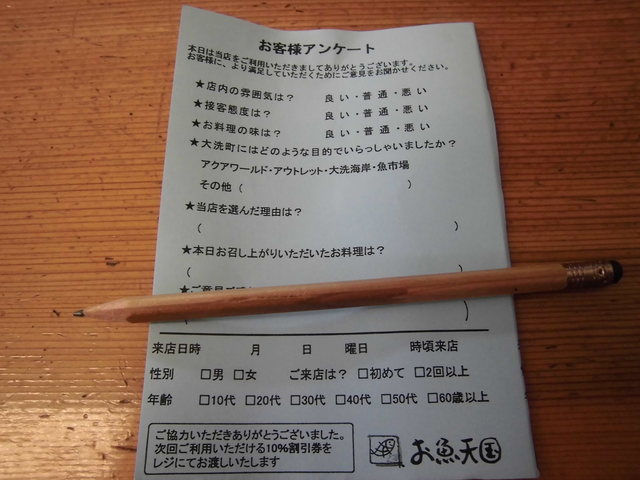 お客様アンケート
本日は当店をご利用いただきましてありがとうございます。
お客様に、より満足していただくためにご意見をお聞かせください。
★店内の雰囲気は？ 良い・普通・悪い
★接客態度は？ 良い・普通・悪い
★お料理の味は？ 良い・普通・悪い
★大洗町にはどのような目的でいらっしゃいましたか？
アクアワールド・アウトレット・大洗海岸・魚市場
その他（ ）
★当店を選んだ理由は？
（ ）
★本日お召し上がりいただいたお料理は？
（ ）
★ご意見
（ ）
来店日時 月 日 曜日 時頃来店
性別 □男 □女 ご来店は？ □初めて □2回以上
年齢 □10代 □20代 □30代 □40代 □50代 □60歳以上
ご協力いただきありがとうございました。
次回ご利用いただける10%割引券を
レジにてお渡しいたします
お魚天国